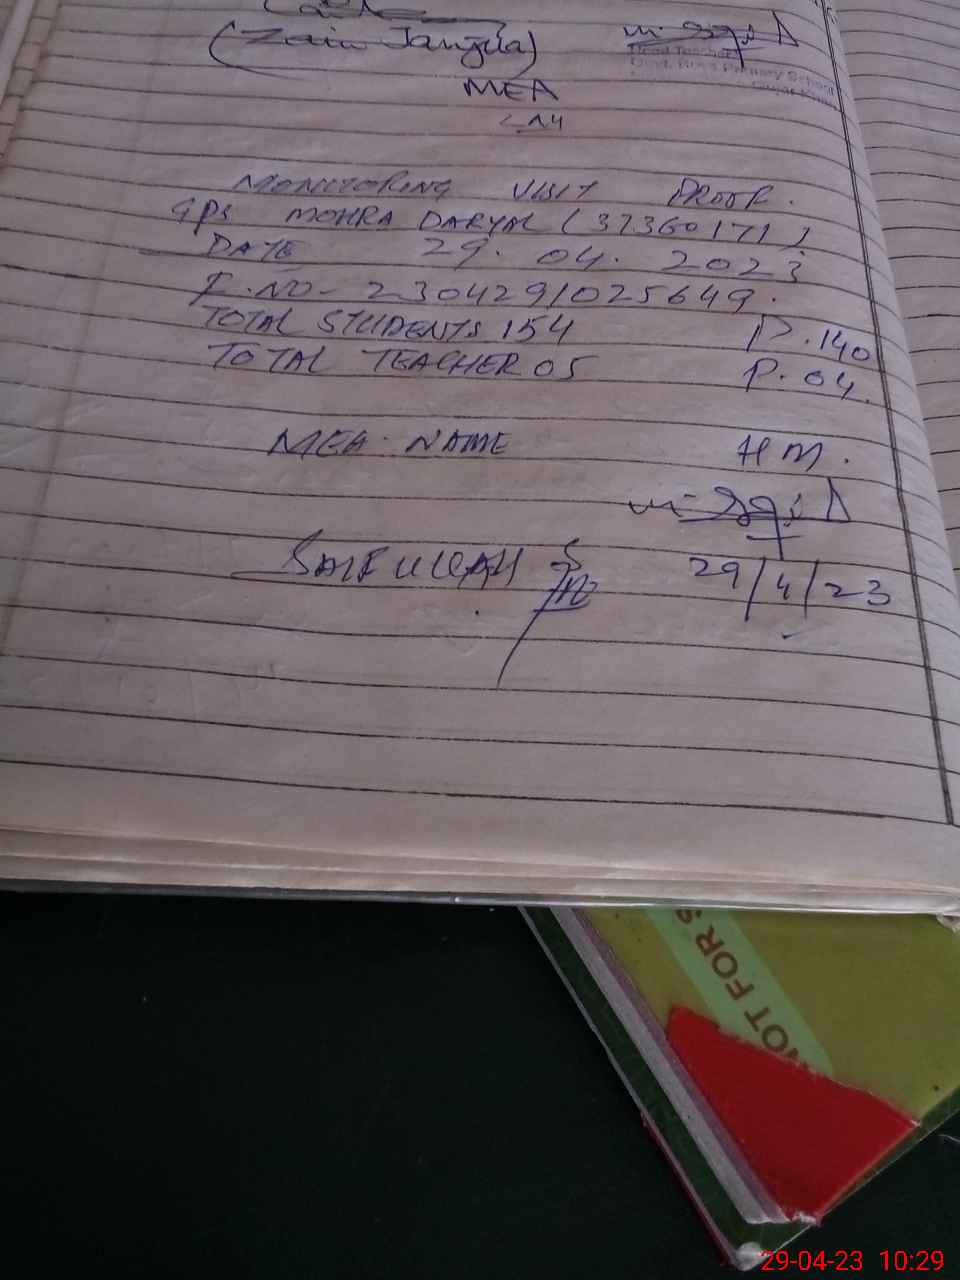 (Zain Janjua)
MEA
Head Teacher
Govt. Boys Primary School
MONITORING VISIT PROOF.
GPS MOHRA DARYAL (37360171)
DATE 29.04.2023
F.NO- 230429/025649.
TOTAL STUDENTS 154 P.140
TOTAL TEACHER 05 P.04.
MEA NAME HM.
SAIFULLAH
29/4/23
NOT FOR
29-04-23 10:29